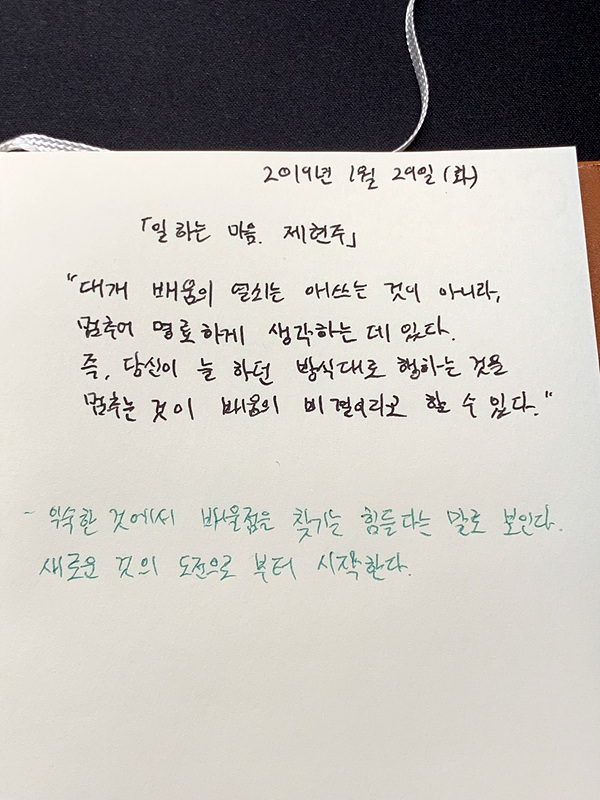 2019년 1월 29일 (화)
「일하는 마음. 제현주」
"대개 배움의 열쇠는 애쓰는 것이 아니라,
멈추어 명료하게 생각하는 데 있다.
즉, 당신이 늘 하던 방식대로 행하는 것을
멈추는 것이 배움의 비결이라고 할 수 있다."
- 익숙한 것에서 배울점은 찾기는 힘들다는 말로 보인다.
새로운 것의 도전으로 부터 시작한다.